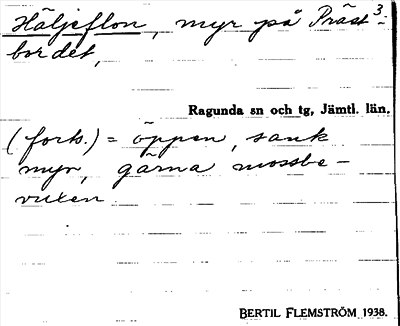 Häljeflon, myr på Präst³-
bordet,
Ragunda sn och tg, Jämtl. län.
(forts.) = öppen, sank
myr, gärna mossbe-
vuxen
BERTIL FLEMSTRÖM 1938.